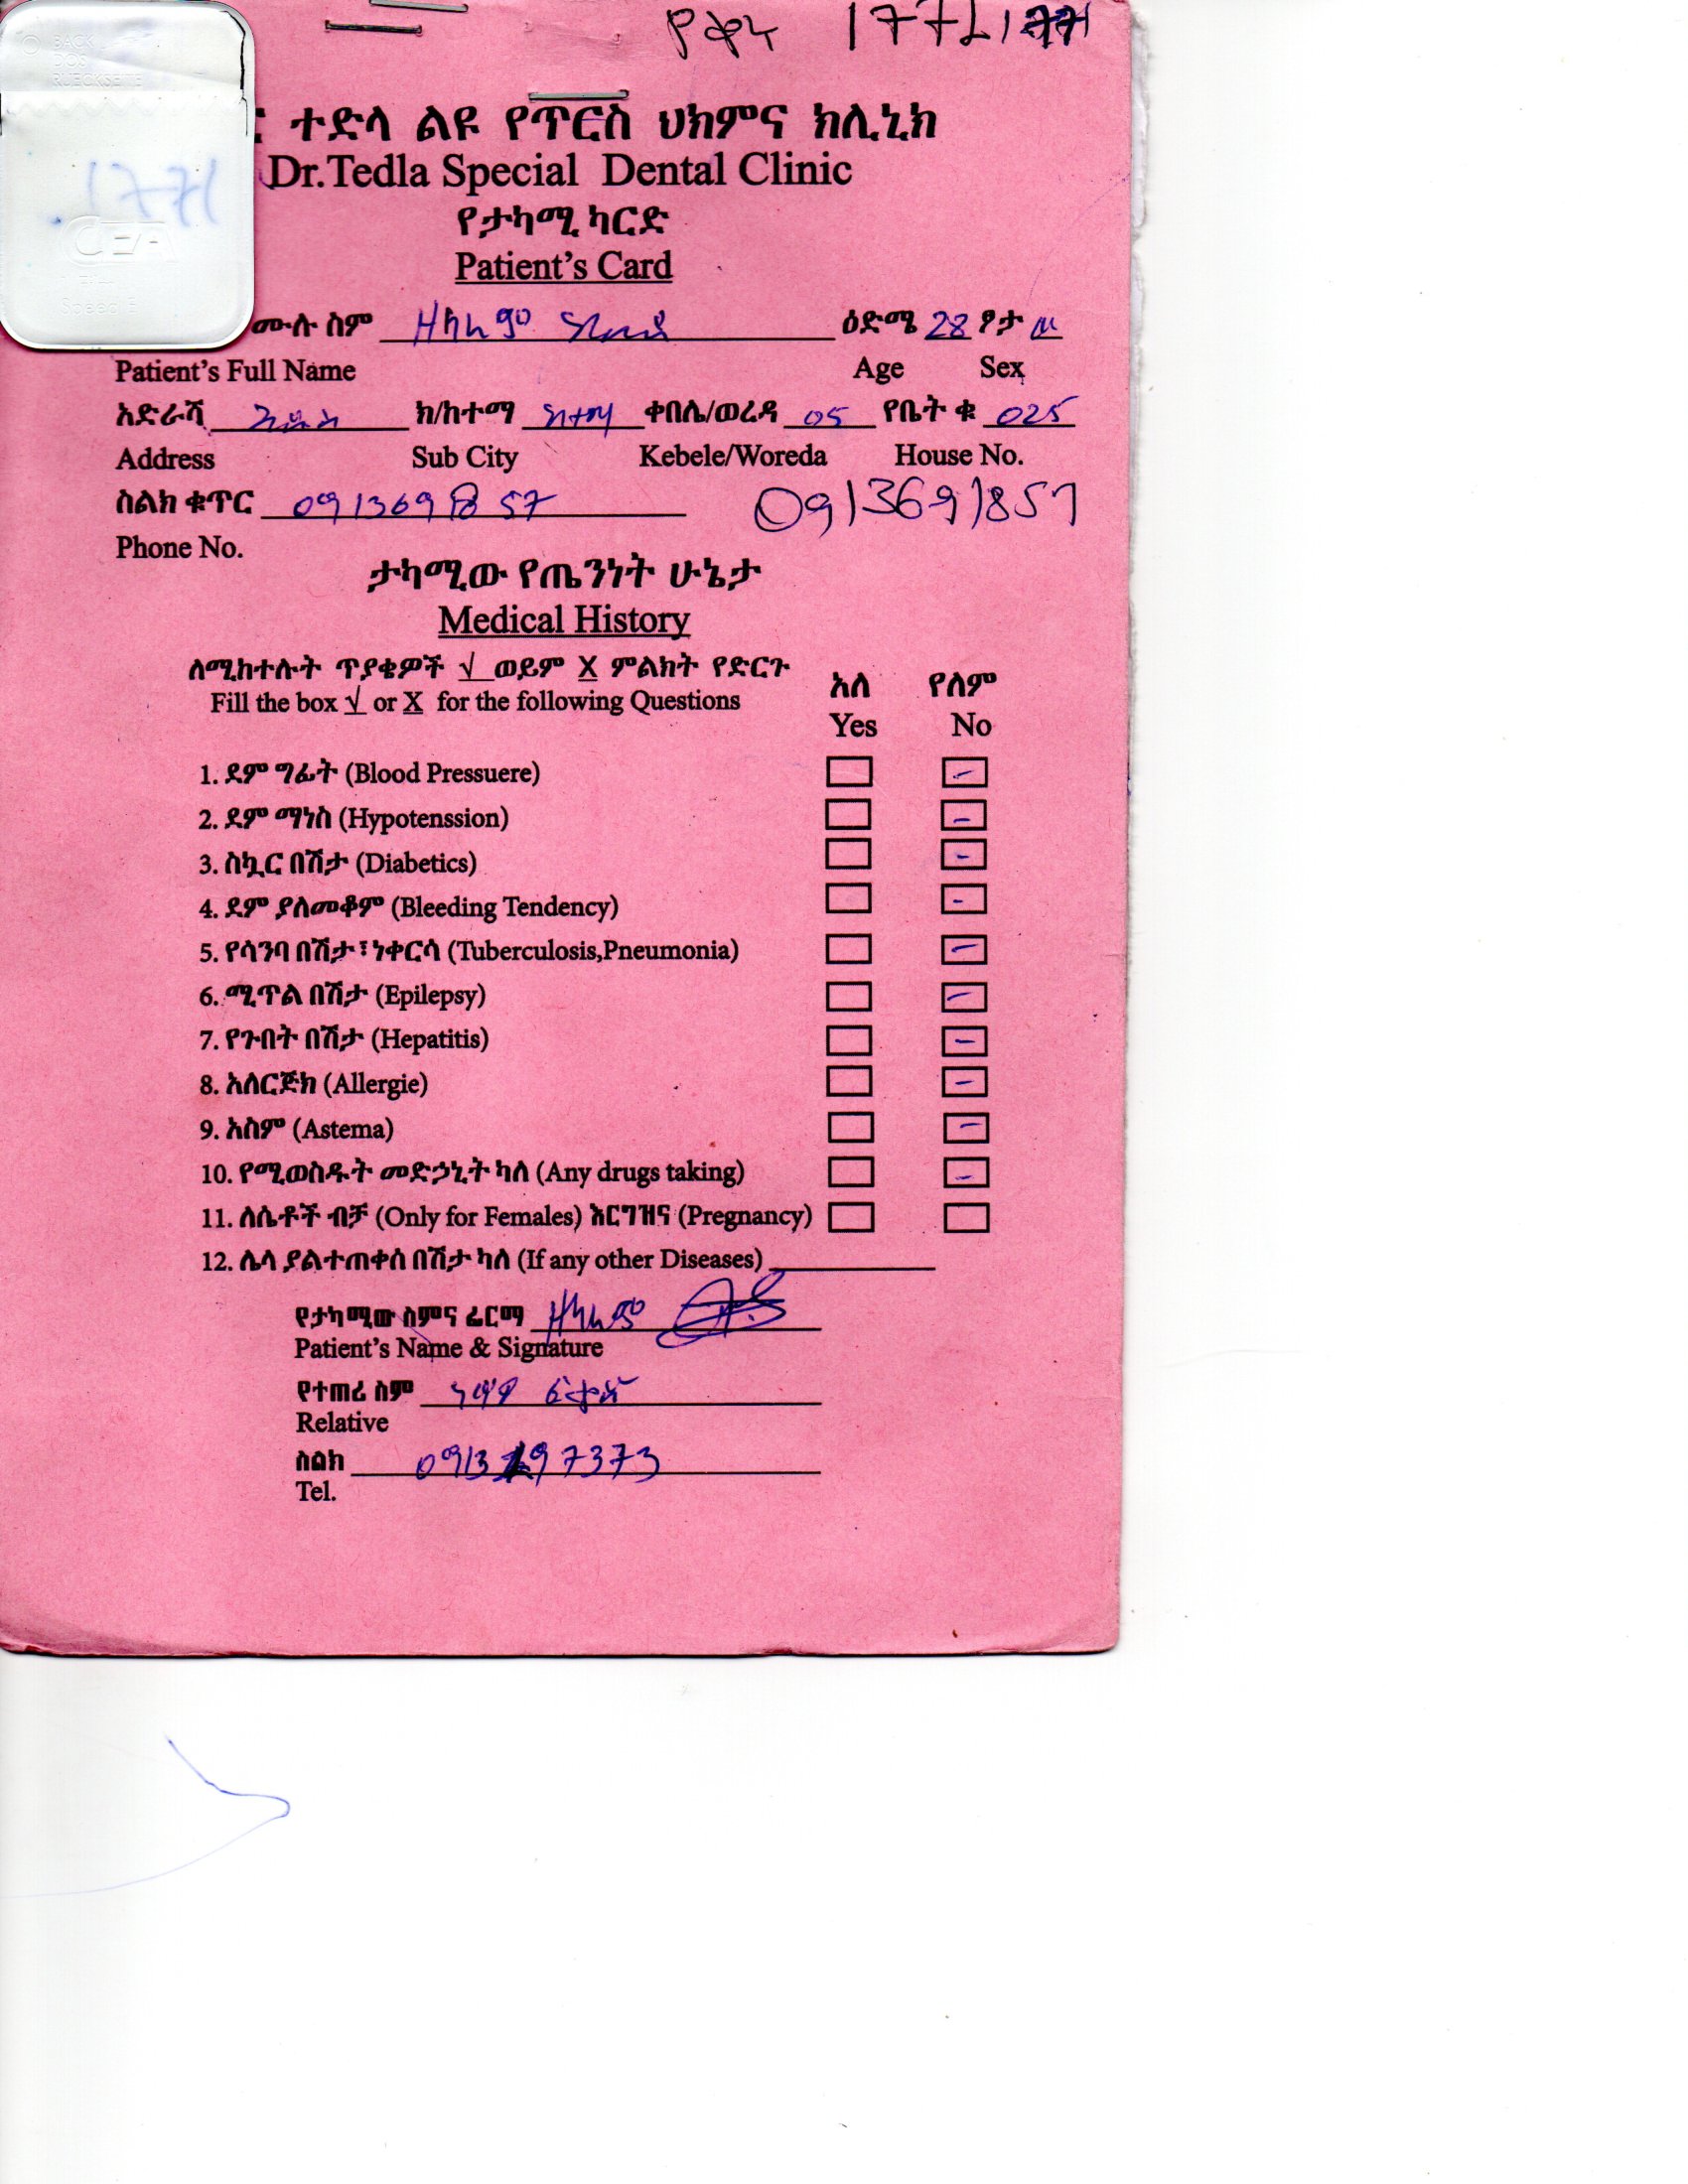 የቀዳ 1771 1771
BACK
DOS
RUECKSEITE
1771
CEA
ር ተድላ ልዩ የጥርስ ህክምና ክሊኒክ
Dr.Tedla Special Dental Clinic
የታካሚ ካርድ
Patient's Card
ሙሉ ስም ዕድሜ 28 ፆታ
Patient's Full Name Age Sex
አድራሻ ክ/ከተማ ቀበሌ/ወረዳ 05 የቤት ቁ 025
Address Sub City Kebele/Woreda House No.
ስልክ ቁጥር 0913691857
Phone No.
ታካሚው የጤንነት ሁኔታ
Medical History
ለሚከተሉት ጥያቄዎች √ ወይም X ምልክት የድርጉ አለ የለም
Fill the box √ or X for the following Questions Yes No
1. ደም ግፊት (Blood Pressuere)
2. ደም ማነስ (Hypotenssion)
3. ስኳር በሽታ (Diabetics)
4. ደም ያለመቆም (Bleeding Tendency)
5. የሳንባ በሽታ፣ ነቀርሳ (Tuberculosis,Pneumonia)
6. ሚጥል በሽታ (Epilepsy)
7. የጉበት በሽታ (Hepatitis)
8. አለርጅክ (Allergie)
9. አስም (Astema)
10. የሚወስዱት መድኃኒት ካለ (Any drugs taking)
11. ለሴቶች ብቻ (Only for Females) እርግዝና (Pregnancy)
12. ሌላ ያልተጠቀሰ በሽታ ካለ (If any other Diseases)
የታካሚው ስምና ፊርማ
Patient's Name & Signature
የተጠሪ ስም
Relative
ስልክ
Tel.